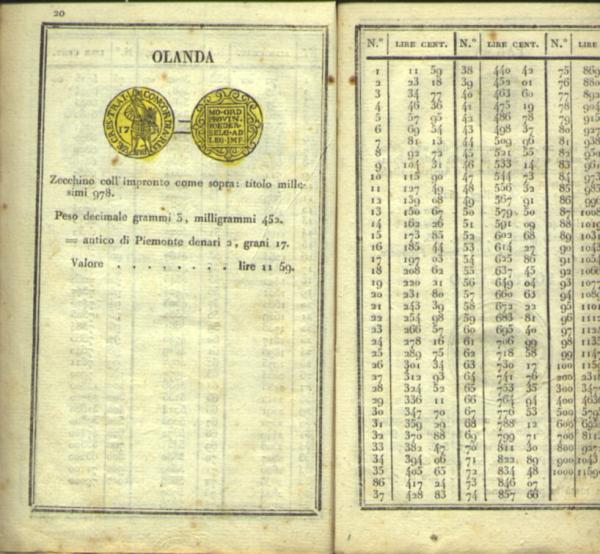 20
OLANDA
MO·ORD
PROVIN
FOEDER
BELG·AD
LEG·IMP
Zecchino coll'impronto come sopra: titolo mille-
simi 978.
Peso decimale grammi 3, milligrammi 452.
= antico di Piemonte denari 2, grani 17.
Valore . . . . . . . . lire 11 59.
N.° LIRE CENT. N.° LIRE CENT. N.° LIRE
1 11 59 38 440 42 75 869
2 23 18 39 452 01 76 880
3 34 77 40 463 60 77 892
4 46 36 41 475 19 78 904
5 57 95 42 486 78 79 915
6 69 54 43 498 37 80 927
7 81 13 44 509 96 81 938
8 92 72 45 521 55 82 950
9 104 31 46 533 14 83 961
10 115 90 47 544 73 84 973
11 127 49 48 556 32 85 985
12 139 08 49 567 91 86 996
13 150 67 50 579 50 87 1008
14 162 26 51 591 09 88 1019
15 173 85 52 602 68 89 1031
16 185 44 53 614 27 90 1043
17 197 03 54 625 86 91 1054
18 208 62 55 637 45 92 1066
19 220 21 56 649 04 93 1077
20 231 80 57 660 63 94 1089
21 243 39 58 672 22 95 1101
22 254 98 59 683 81 96 1112
23 266 57 60 695 40 97 1124
24 278 16 61 706 99 98 1135
25 289 75 62 718 58 99 1147
26 301 34 63 730 17 100 1159
27 312 93 64 741 76 200 2318
28 324 52 65 753 35 300 347
29 336 11 66 764 94 400 4636
30 347 70 67 776 53 500 579
31 359 29 68 788 12 600 695
32 370 88 69 799 71 700 811
33 382 47 70 811 30 800 927
34 394 06 71 822 89 900 1043
35 405 65 72 834 48 1000 1159
86 417 24 73 846 07
37 428 83 74 857 66